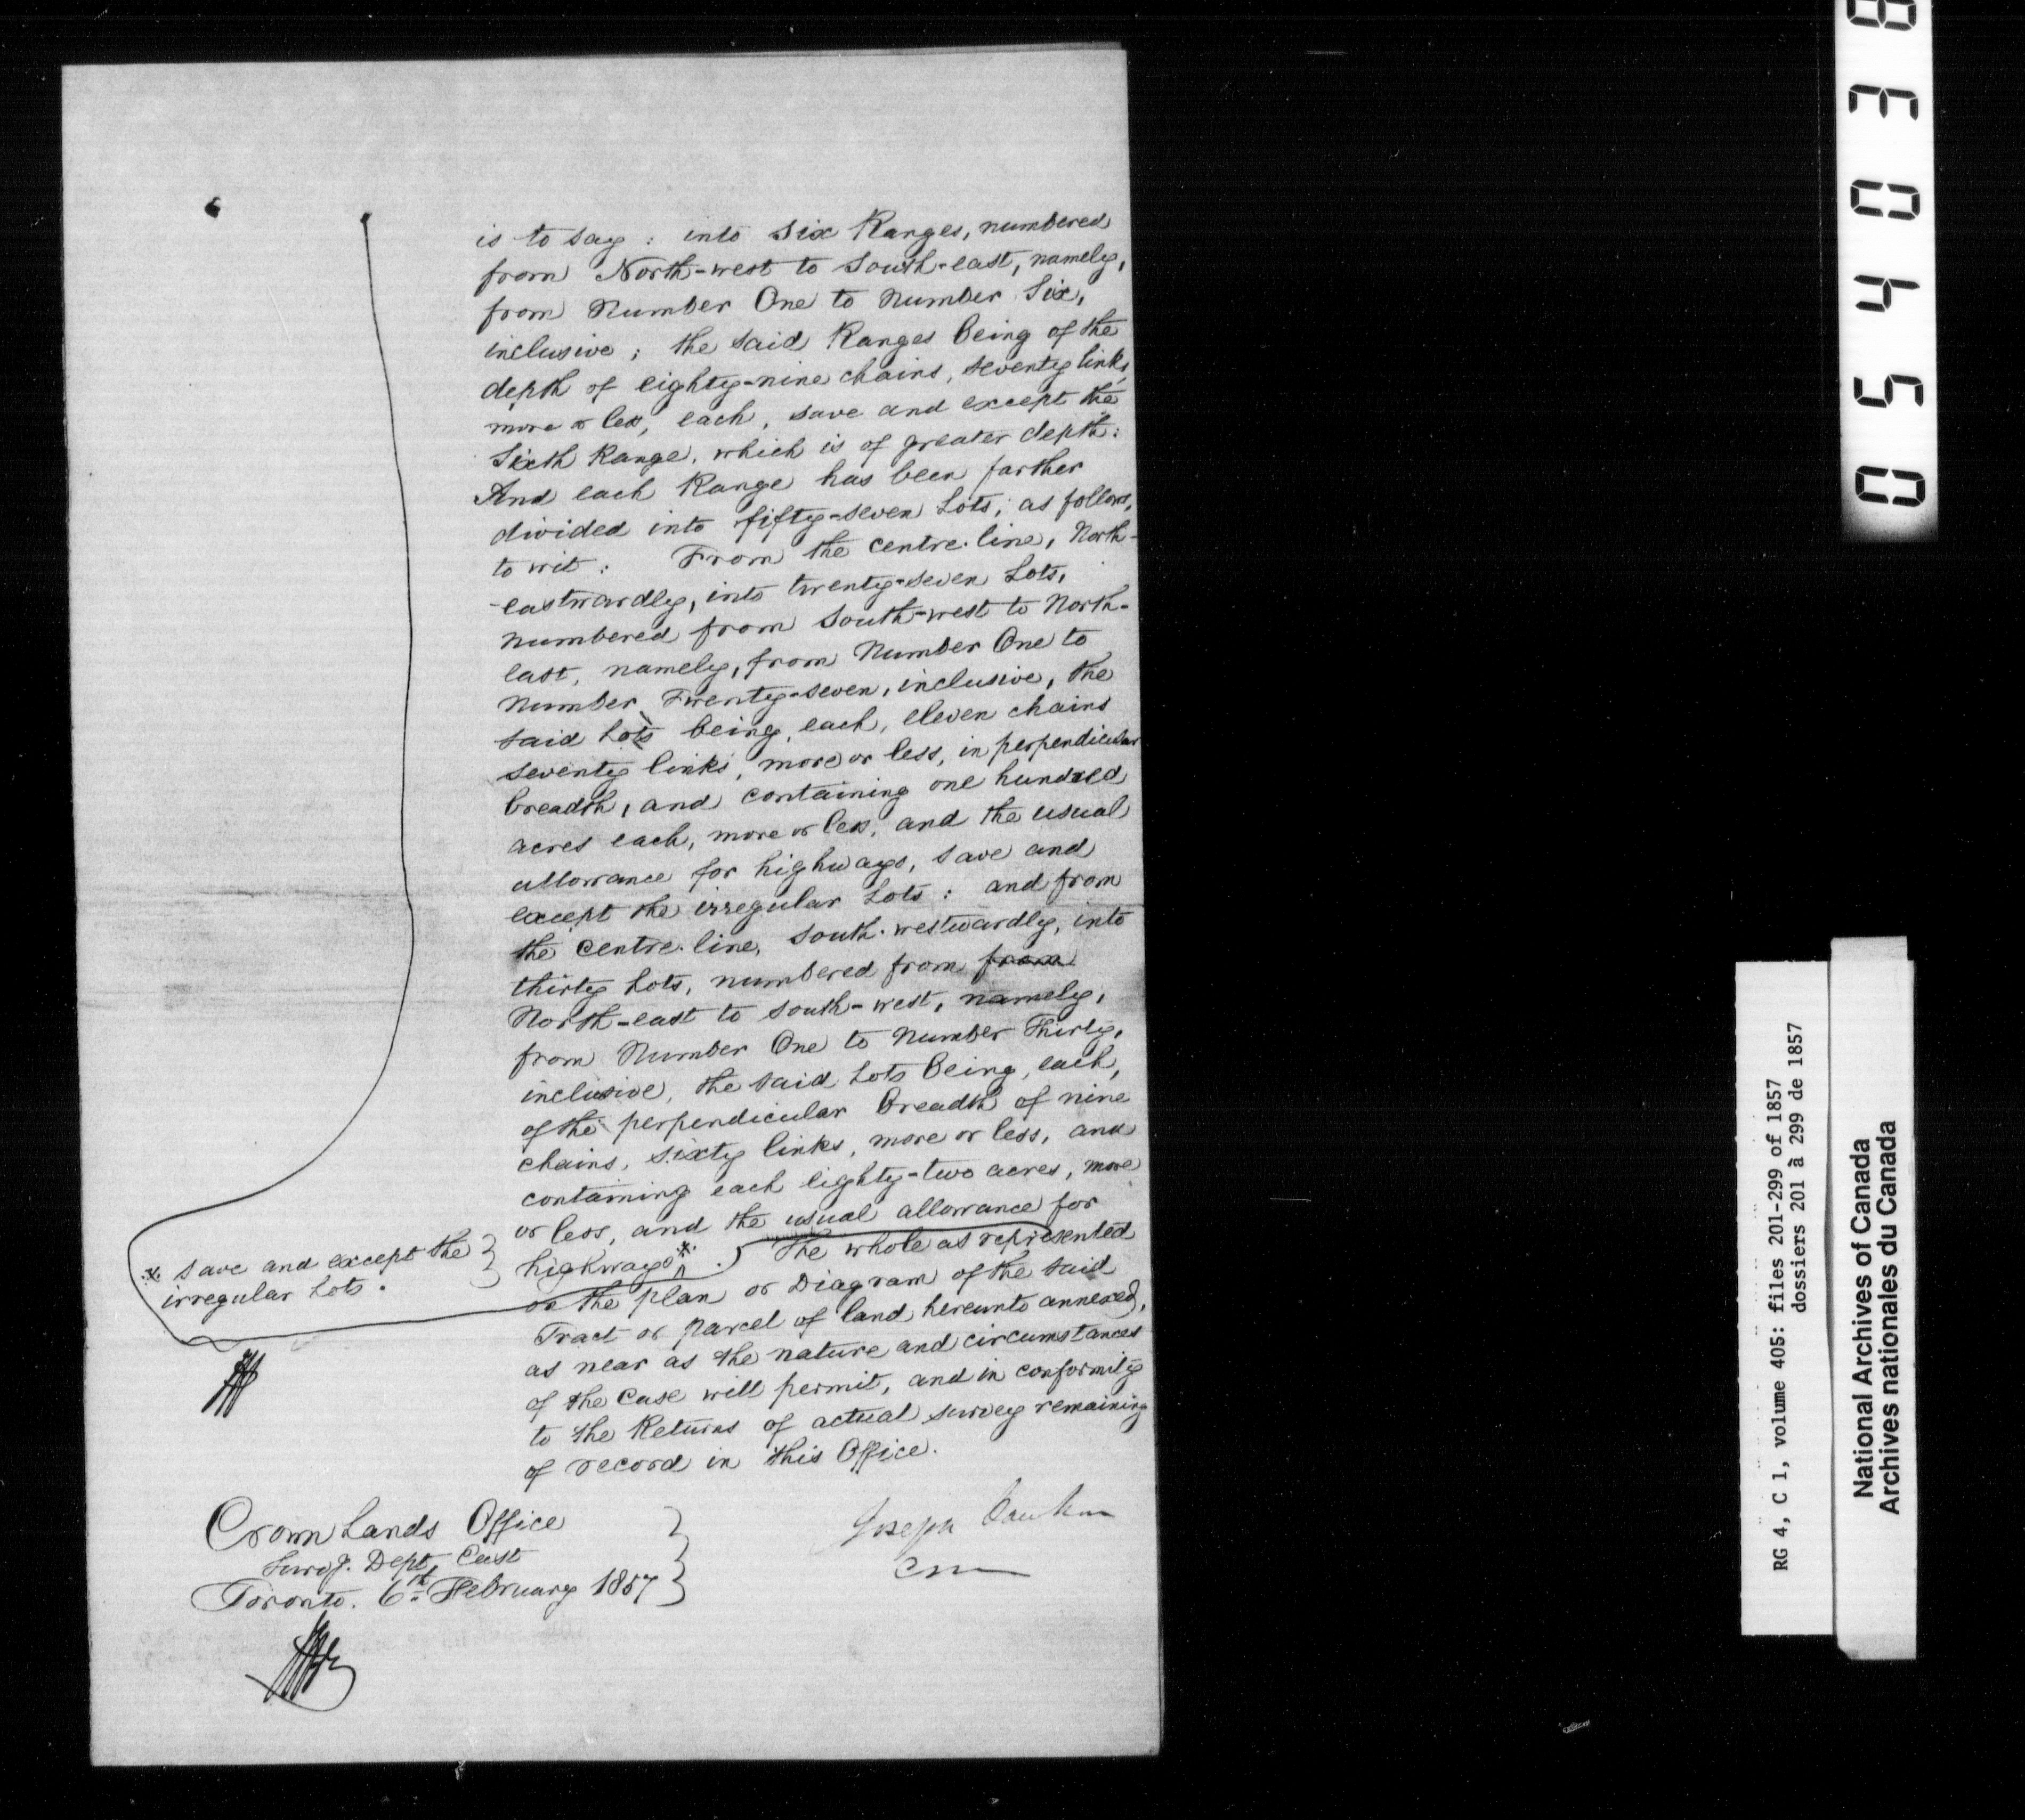 is to say : into Six Ranges, numbered
from North-west to South-east, namely,
from Number One to Number Six,
inclusive ; the said Ranges being of the
depth of eighty-nine chains, seventy links,
more or less, each, save and except the
Sixth Range, which is of greater depth :
And each Range has been farther
divided into fifty-seven Lots ; as follows,
to wit : From the centre-line, North-
-eastwardly, into twenty-seven Lots,
numbered from South-west to North-
east, namely, from Number One to
Number Twenty-seven, inclusive, the
said Lots being, each, eleven chains
seventy links, more or less, in perpendicular
breadth, and containing one hundred
acres each, more or less, and the usual
allowance for highways, save and
except the irregular Lots : and from
the centre-line, South-westwardly, into
thirty Lots, numbered from from
North-east to South-west, namely,
from Number One to Number Thirty,
inclusive, the said Lots being, each,
of the perpendicular breadth of nine
chains, sixty links, more or less, and
containing each eighty-two acres, more
or less, and the usual allowance for
highways*. The whole as represented
* save and except the
irregular Lots.
on the plan or Diagram of the said
Tract or parcel of land hereunto annexed,
as near as the nature and circumstances
of the Case will permit, and in conformity
to the Returns of actual survey remaining
of record in this Office.
Crown Lands Office
Dept. East
Toronto. 6th February 1857
Joseph
054038
RG 4, C 1, volume 405: files 201-299 of 1857
dossiers 201 à 299 de 1857
National Archives of Canada
Archives nationales du Canada